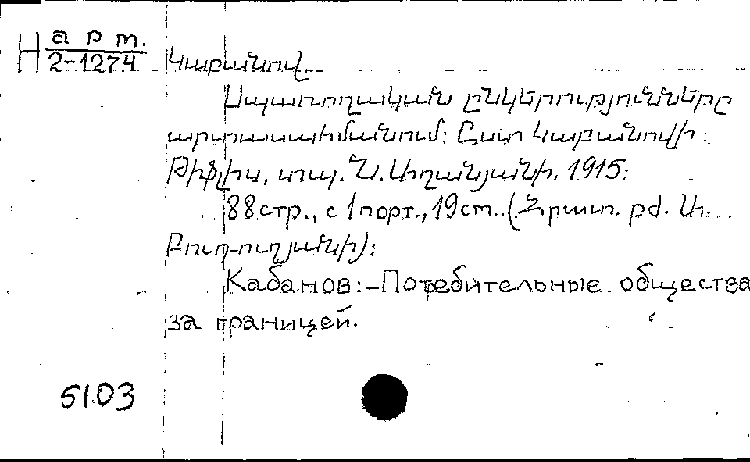 Н арт.
2-1274
Կաբանով
Սպառողական ընկերությունները
արտասահմանում: Ըստ Կաբանովի:
Թիֆլիս, տպ. Ն. Աղանյանի, 1915:
88 стр., с 1 порт., 19 cm. (Հրատ. քժ. Ա.
Բուդուղյանի):
Кабанов:-Потребительные общества
за границей.
5103